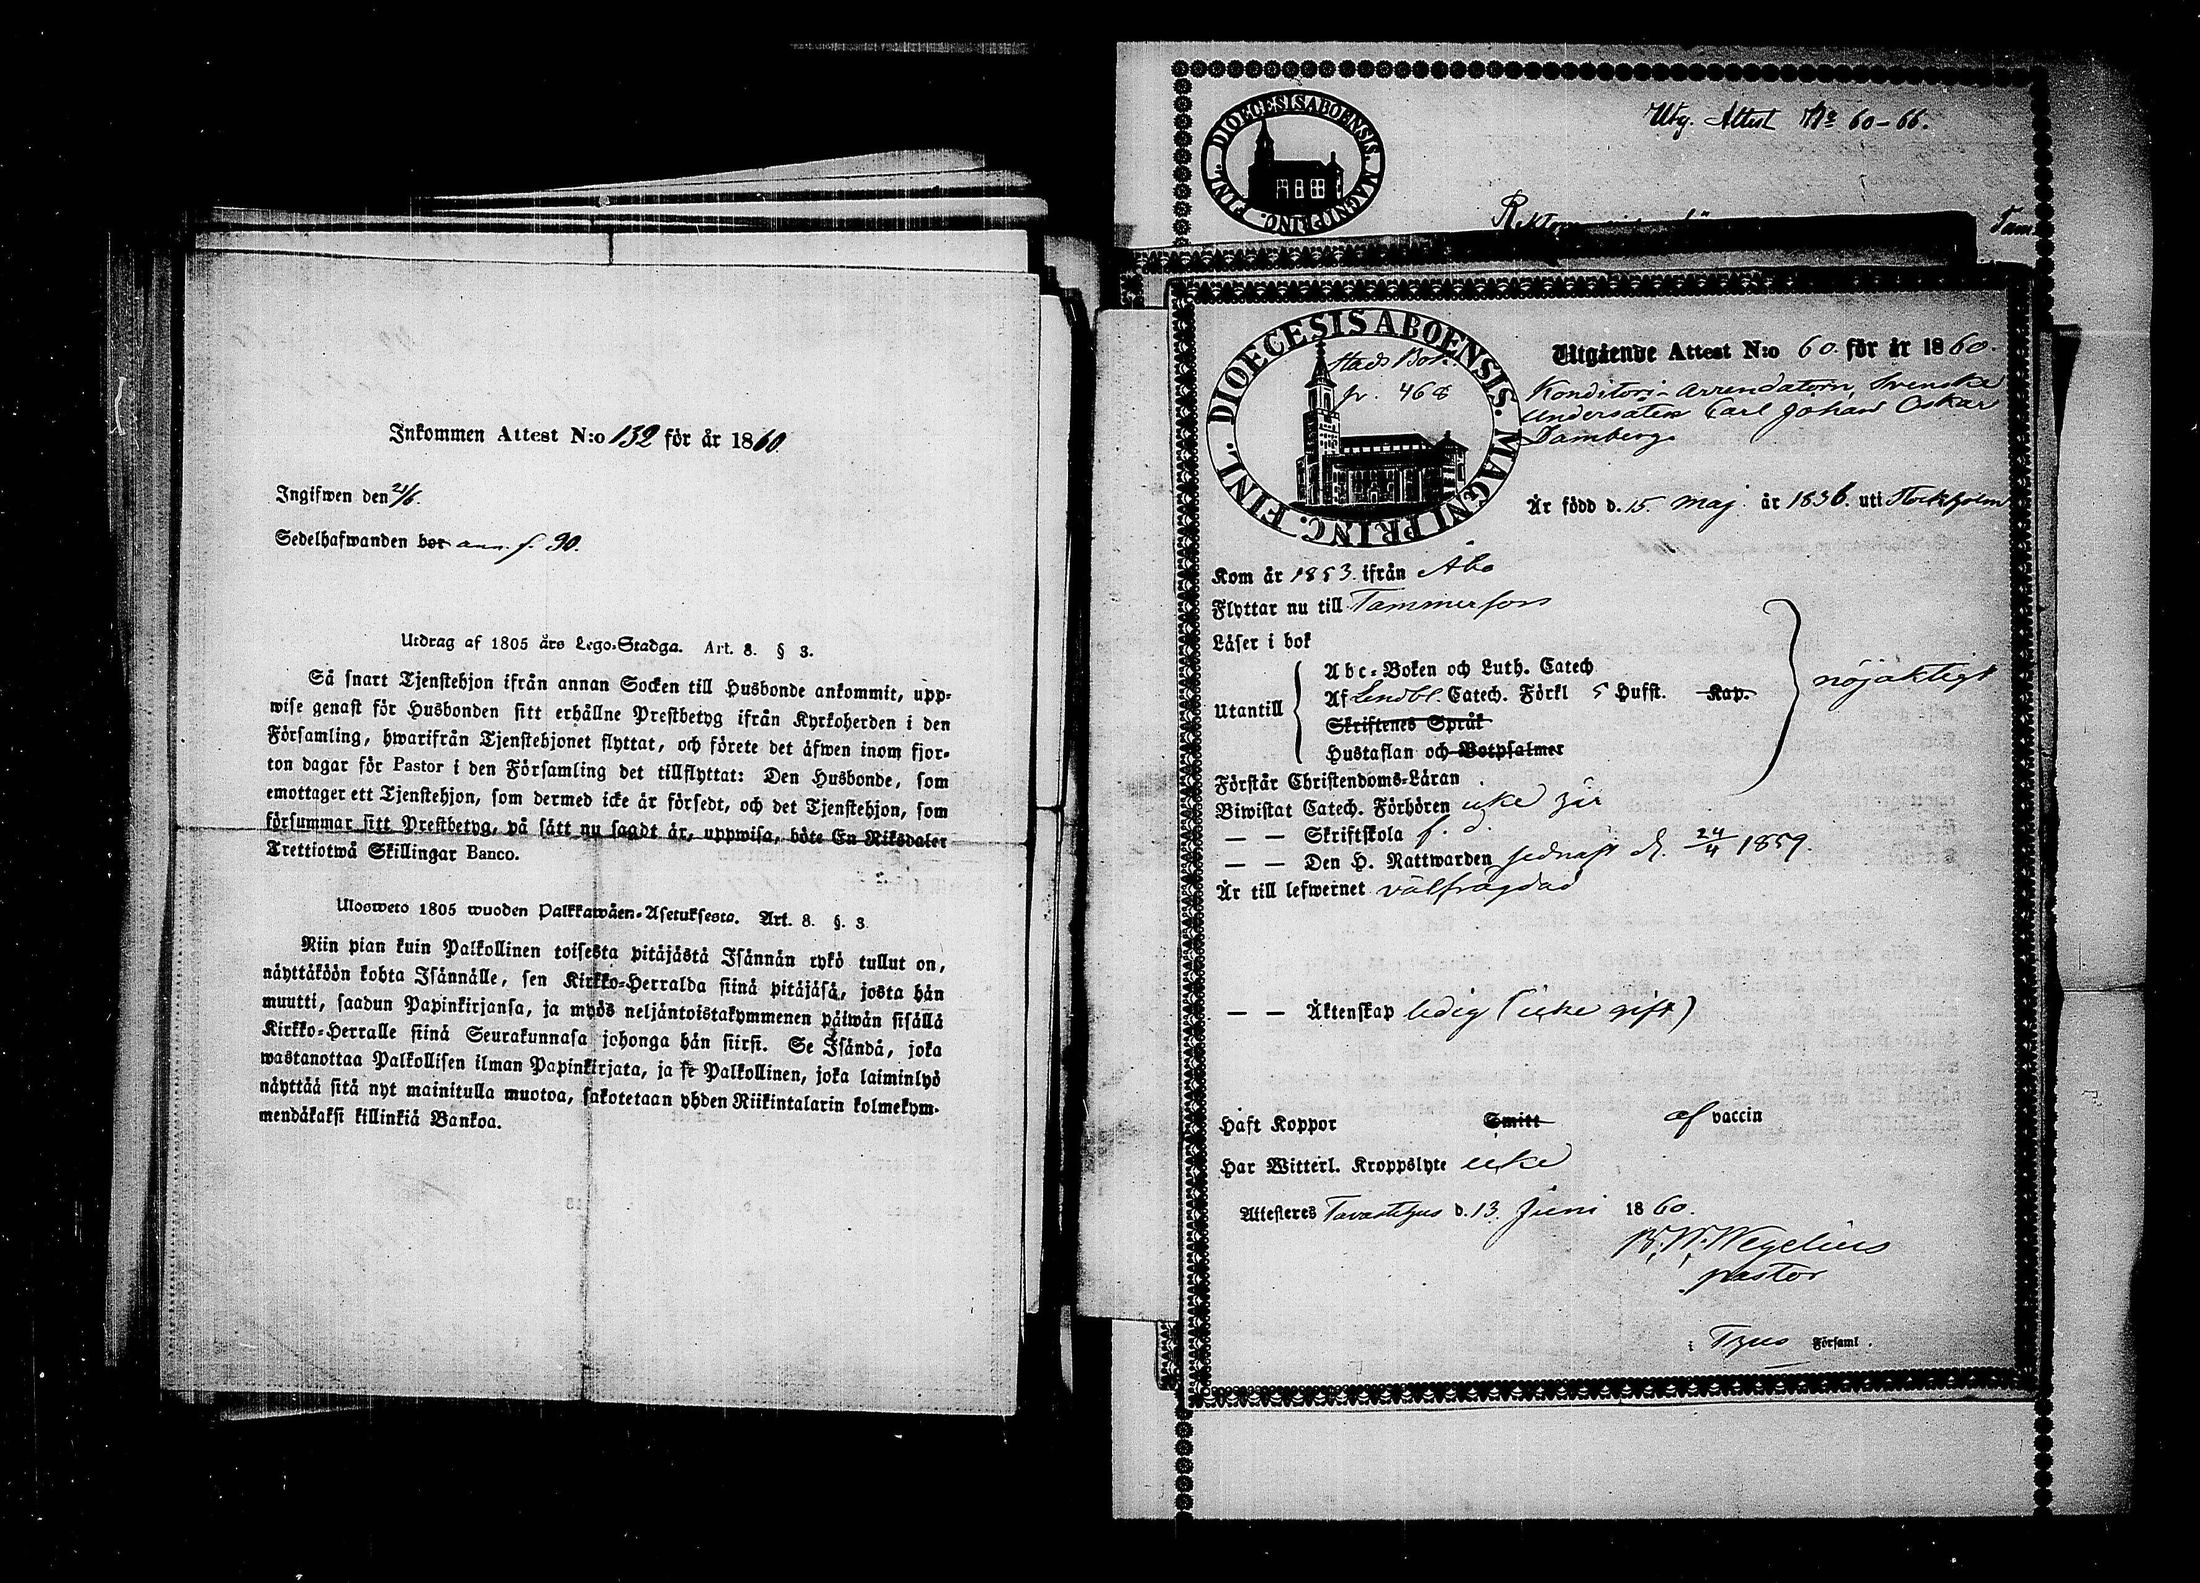 Inkommen Attest N:o 132 för år 1860.
Ingifwen den 21/6.
Sedelhafwanden bor ann. f. 90.
Utdrag af 1805 års Lego-Stadga. Art. 8. § 3.
Så snart Tjenstehjon ifrån annan Socken till Husbonde ankommit, upp-
wise genast för Husbonden sitt erhållne Prestbetyg ifrån Kyrkoherden i den
Församling, hwarifrån Tjenstehjonet flyttat, och förete det äfwen inom fjor-
ton dagar för Pastor i den Församling det tillflyttat: Den Husbonde, som
emottager ett Tjenstehjon, som dermed icke är försedt, och det Tjenstehjon, som
försummar sitt Prestbetyg, på sätt nu sagdt är, uppwisa, böte En Riksdaler
Trettiotwå Skillingar Banco.
Ulosweto 1805 wuoden Palkkawäen-Asetuksesta. Art. 8. §. 3
Niin pian kuin Palkollinen toisesta pitäjästä Isännän tykö tullut on,
näyttäköön kohta Isännälle, sen Kirkko-Herralda siinä pitäjäsä, josta hän
muutti, saadun Papinkirjansa, ja myös neljäntoistakymmenen päiwän sisällä
Kirkko-Herralle siinä Seurakunnasa johonga hän siirsi. Se Isändä, joka
wastanottaa Palkollisen ilman Papinkirjata, ja se Palkollinen, joka laiminlyö
näyttää sitä nyt mainitulla muotoa, sakotetaan yhden Riikintalarin kolmekym-
mendäkaksi killinkiä Bankoa.
DIOECESIS ABOENSIS. MAGNI PRINC. FINL.
Utg. Attest No 60-66.
Tam
DIOECESIS ABOENSIS. MAGNI PRINC. FINL.
Stads Bok.
p. 468
Utgående Attest N:o 60. för år 1860.
Konditori-arrendatorn, Svenske
Undersåten Carl Johan Oskar
Damberg.
Är född d. 15. Maj. år 1836. uti Stockholm
Kom år 1853. ifrån Åbo
Flyttar nu till Tammerfors
Läser i bok
Utantill
Abc-Boken och Luth. Catech
Af Lindbl. Catech. Förkl 5 Hufst. Kap.
Skriftenes Språk
Hustaflan och Botpsalmer
nöjaktigt
Förstår Christendoms-Läran
Biwistat Catech. Förhören icke här
— — Skriftskola f. d.
— — Den H. Nattwarden sednast d. 24/4 1859.
Är till lefwernet välfrägdad
— — Äktenskap ledig (icke gift)
Haft Koppor Smitt af vaccin
Har Witterl. Kroppslyte icke
Attesteres Tavastehus d. 13. Juni 1860.
B. W. Wegelius
pastor
i T:hus Församl.